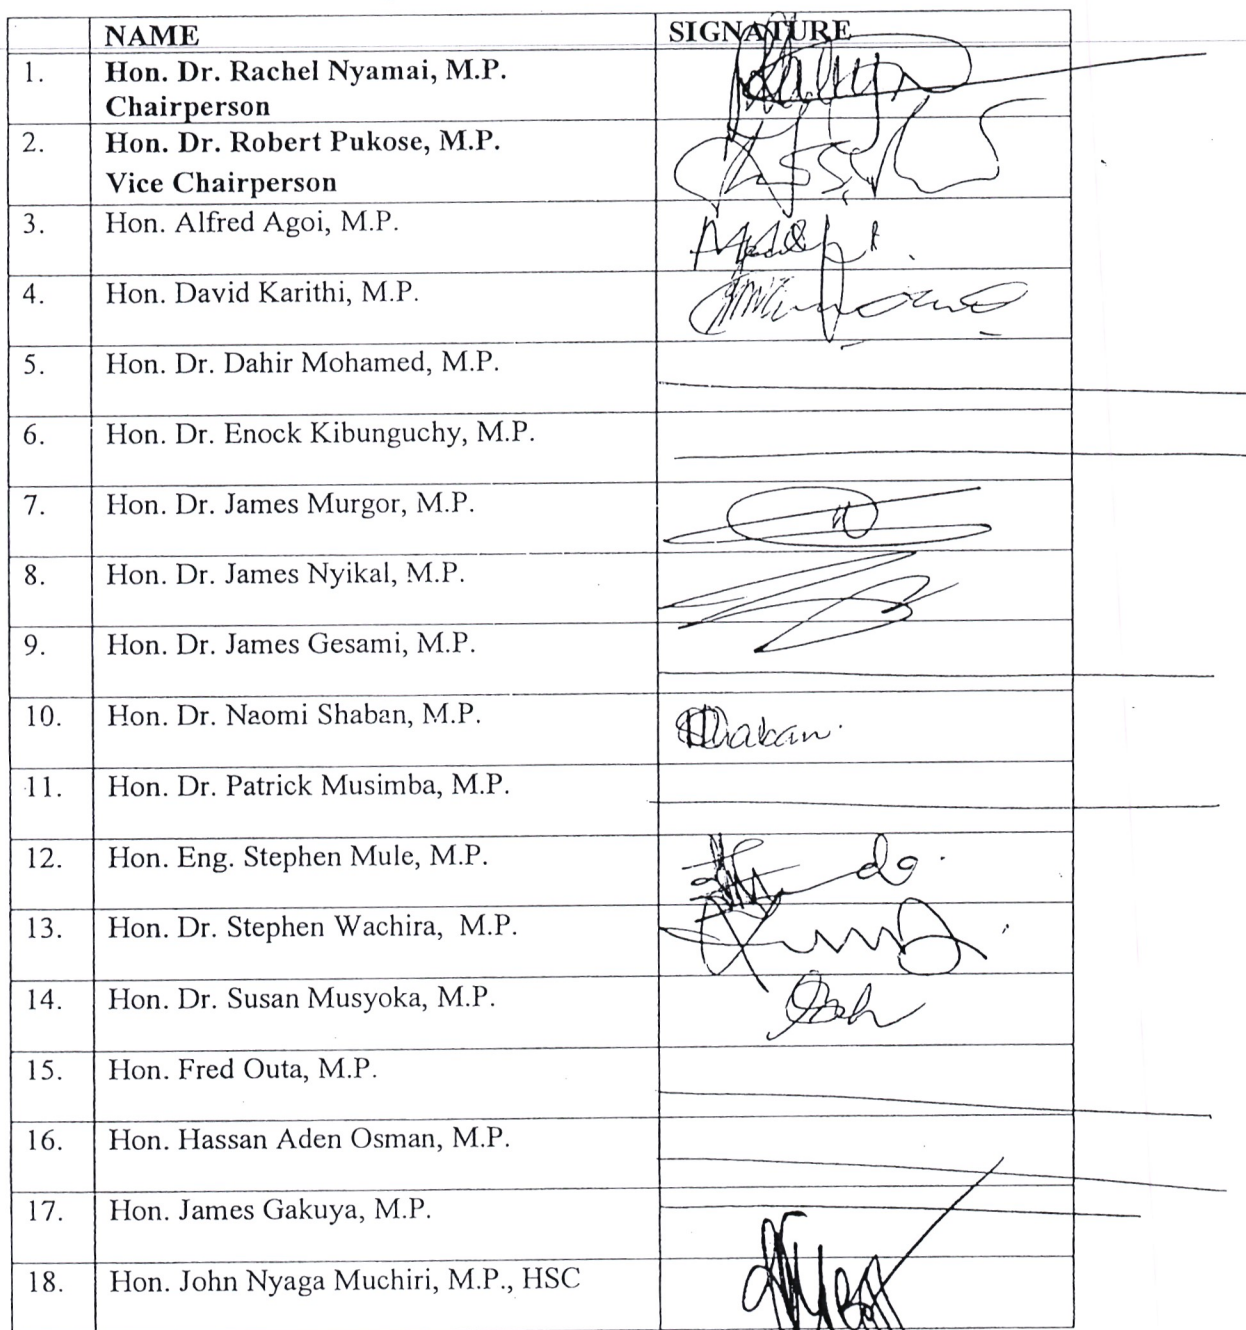 NAME SIGNATURE
1. Hon. Dr. Rachel Nyamai, M.P.
Chairperson
2. Hon. Dr. Robert Pukose, M.P.
Vice Chairperson
3. Hon. Alfred Agoi, M.P.
4. Hon. David Karithi, M.P.
5. Hon. Dr. Dahir Mohamed, M.P.
6. Hon. Dr. Enock Kibunguchy, M.P.
7. Hon. Dr. James Murgor, M.P.
8. Hon. Dr. James Nyikal, M.P.
9. Hon. Dr. James Gesami, M.P.
10. Hon. Dr. Naomi Shaban, M.P.
11. Hon. Dr. Patrick Musimba, M.P.
12. Hon. Eng. Stephen Mule, M.P.
13. Hon. Dr. Stephen Wachira, M.P.
14. Hon. Dr. Susan Musyoka, M.P.
15. Hon. Fred Outa, M.P.
16. Hon. Hassan Aden Osman, M.P.
17. Hon. James Gakuya, M.P.
18. Hon. John Nyaga Muchiri, M.P., HSC